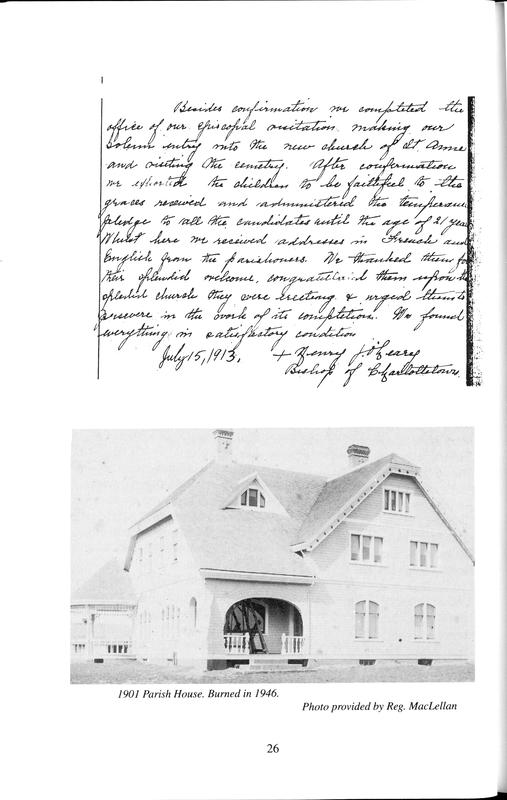 Besides confirmation we completed the
office of our episcopal visitation, making our
solemn entry into the new church of St Anne
and visiting the cemetry. After confirmation
we exhorted the children to be faithful to the
graces received and administered the temperance
pledge to all the candidates until the age of 21 years
Whilst here we received addresses in French and
English from the parishoners. We thanked them for
their splendid welcome, congratulated them upon the
splendid church they were erecting & urged them to
persevere in the work of its completion. We found
everything in satisfactory condition
July 15, 1913. + Henry J O'Leary
Bishop of Charlottetown.
1901 Parish House. Burned in 1946.
Photo provided by Reg. MacLellan
26